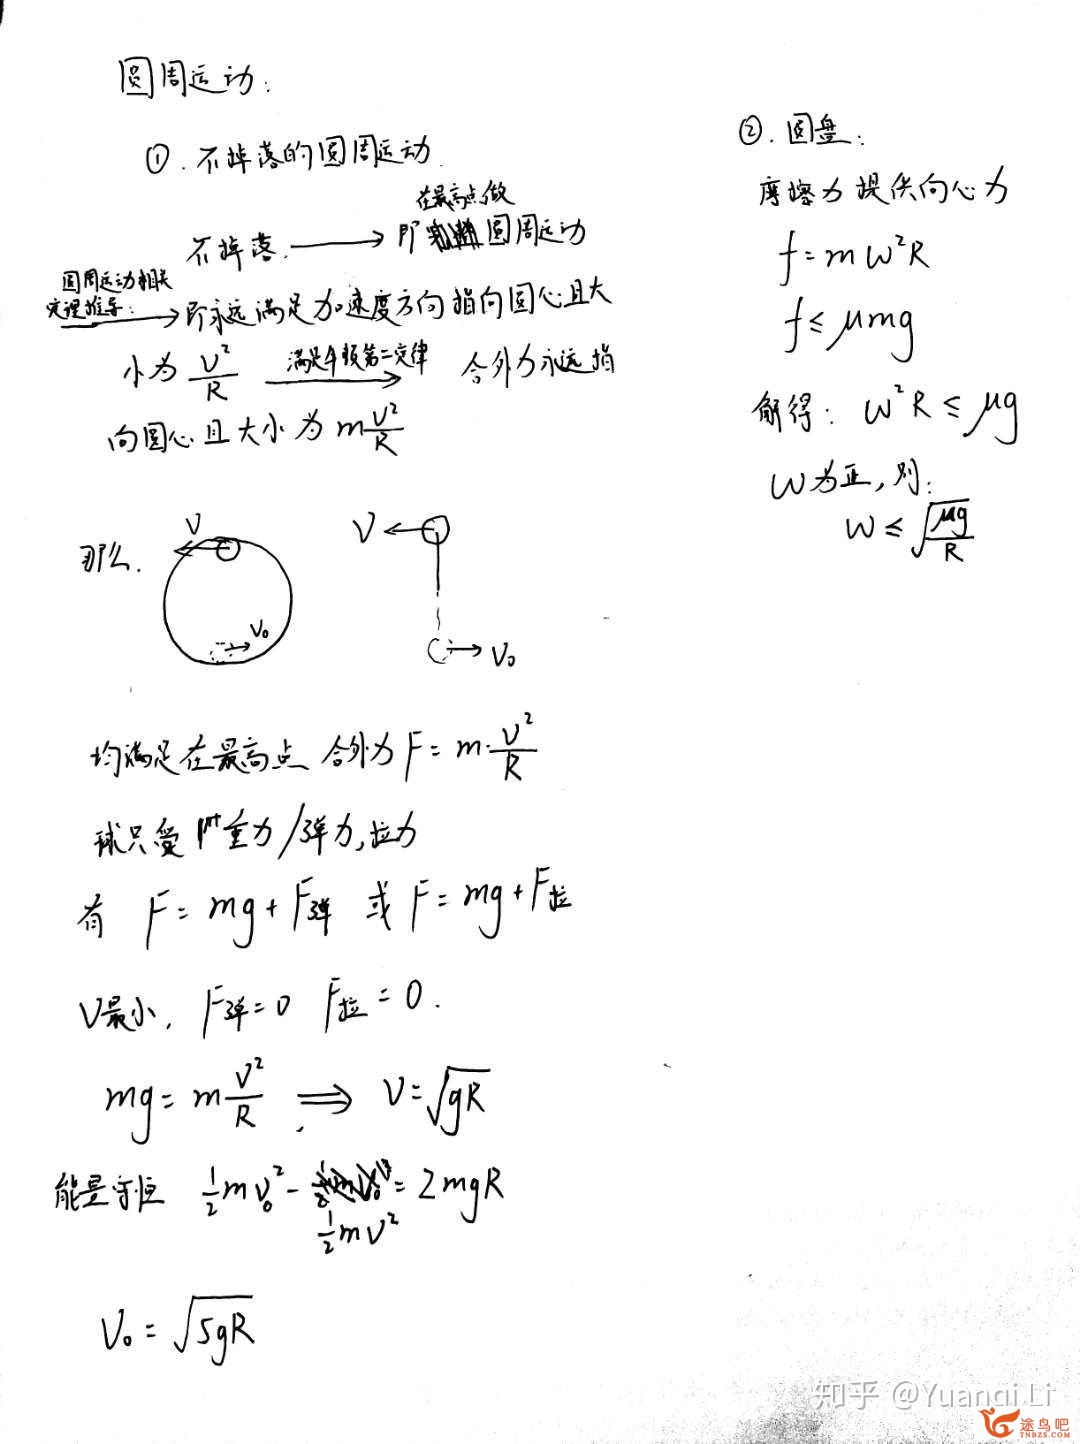 圆周运动:
①. 不掉落的圆周运动.
在最高点做
不掉落. ⟶ 即 圆周运动
圆周运动相关
定理推导: ⟶ 即永远满足加速度方向指向圆心且大
小为 V²/R 满足牛顿第二定律 ⟶ 合外力永远指
向圆心且大小为 mV²/R
那么.
V
V₀
V
V₀
均满足在最高点 合外力 F = m·V²/R
球只受 重力/弹力,拉力
有 F = mg + F弹 或 F = mg + F拉
V最小, F弹 = 0 F拉 = 0.
mg = mV²/R ⟹ V = √gR
能量守恒 ½mv₀² - ½mv² = 2mgR
V₀ = √5gR
②. 圆盘:
摩擦力提供向心力
f = mω²R
f ≤ μmg
解得: ω²R ≤ μg
ω为正, 则:
ω ≤ √μg/R
知乎 @Yuanqi Li
途鸟吧
TNBZS.COM